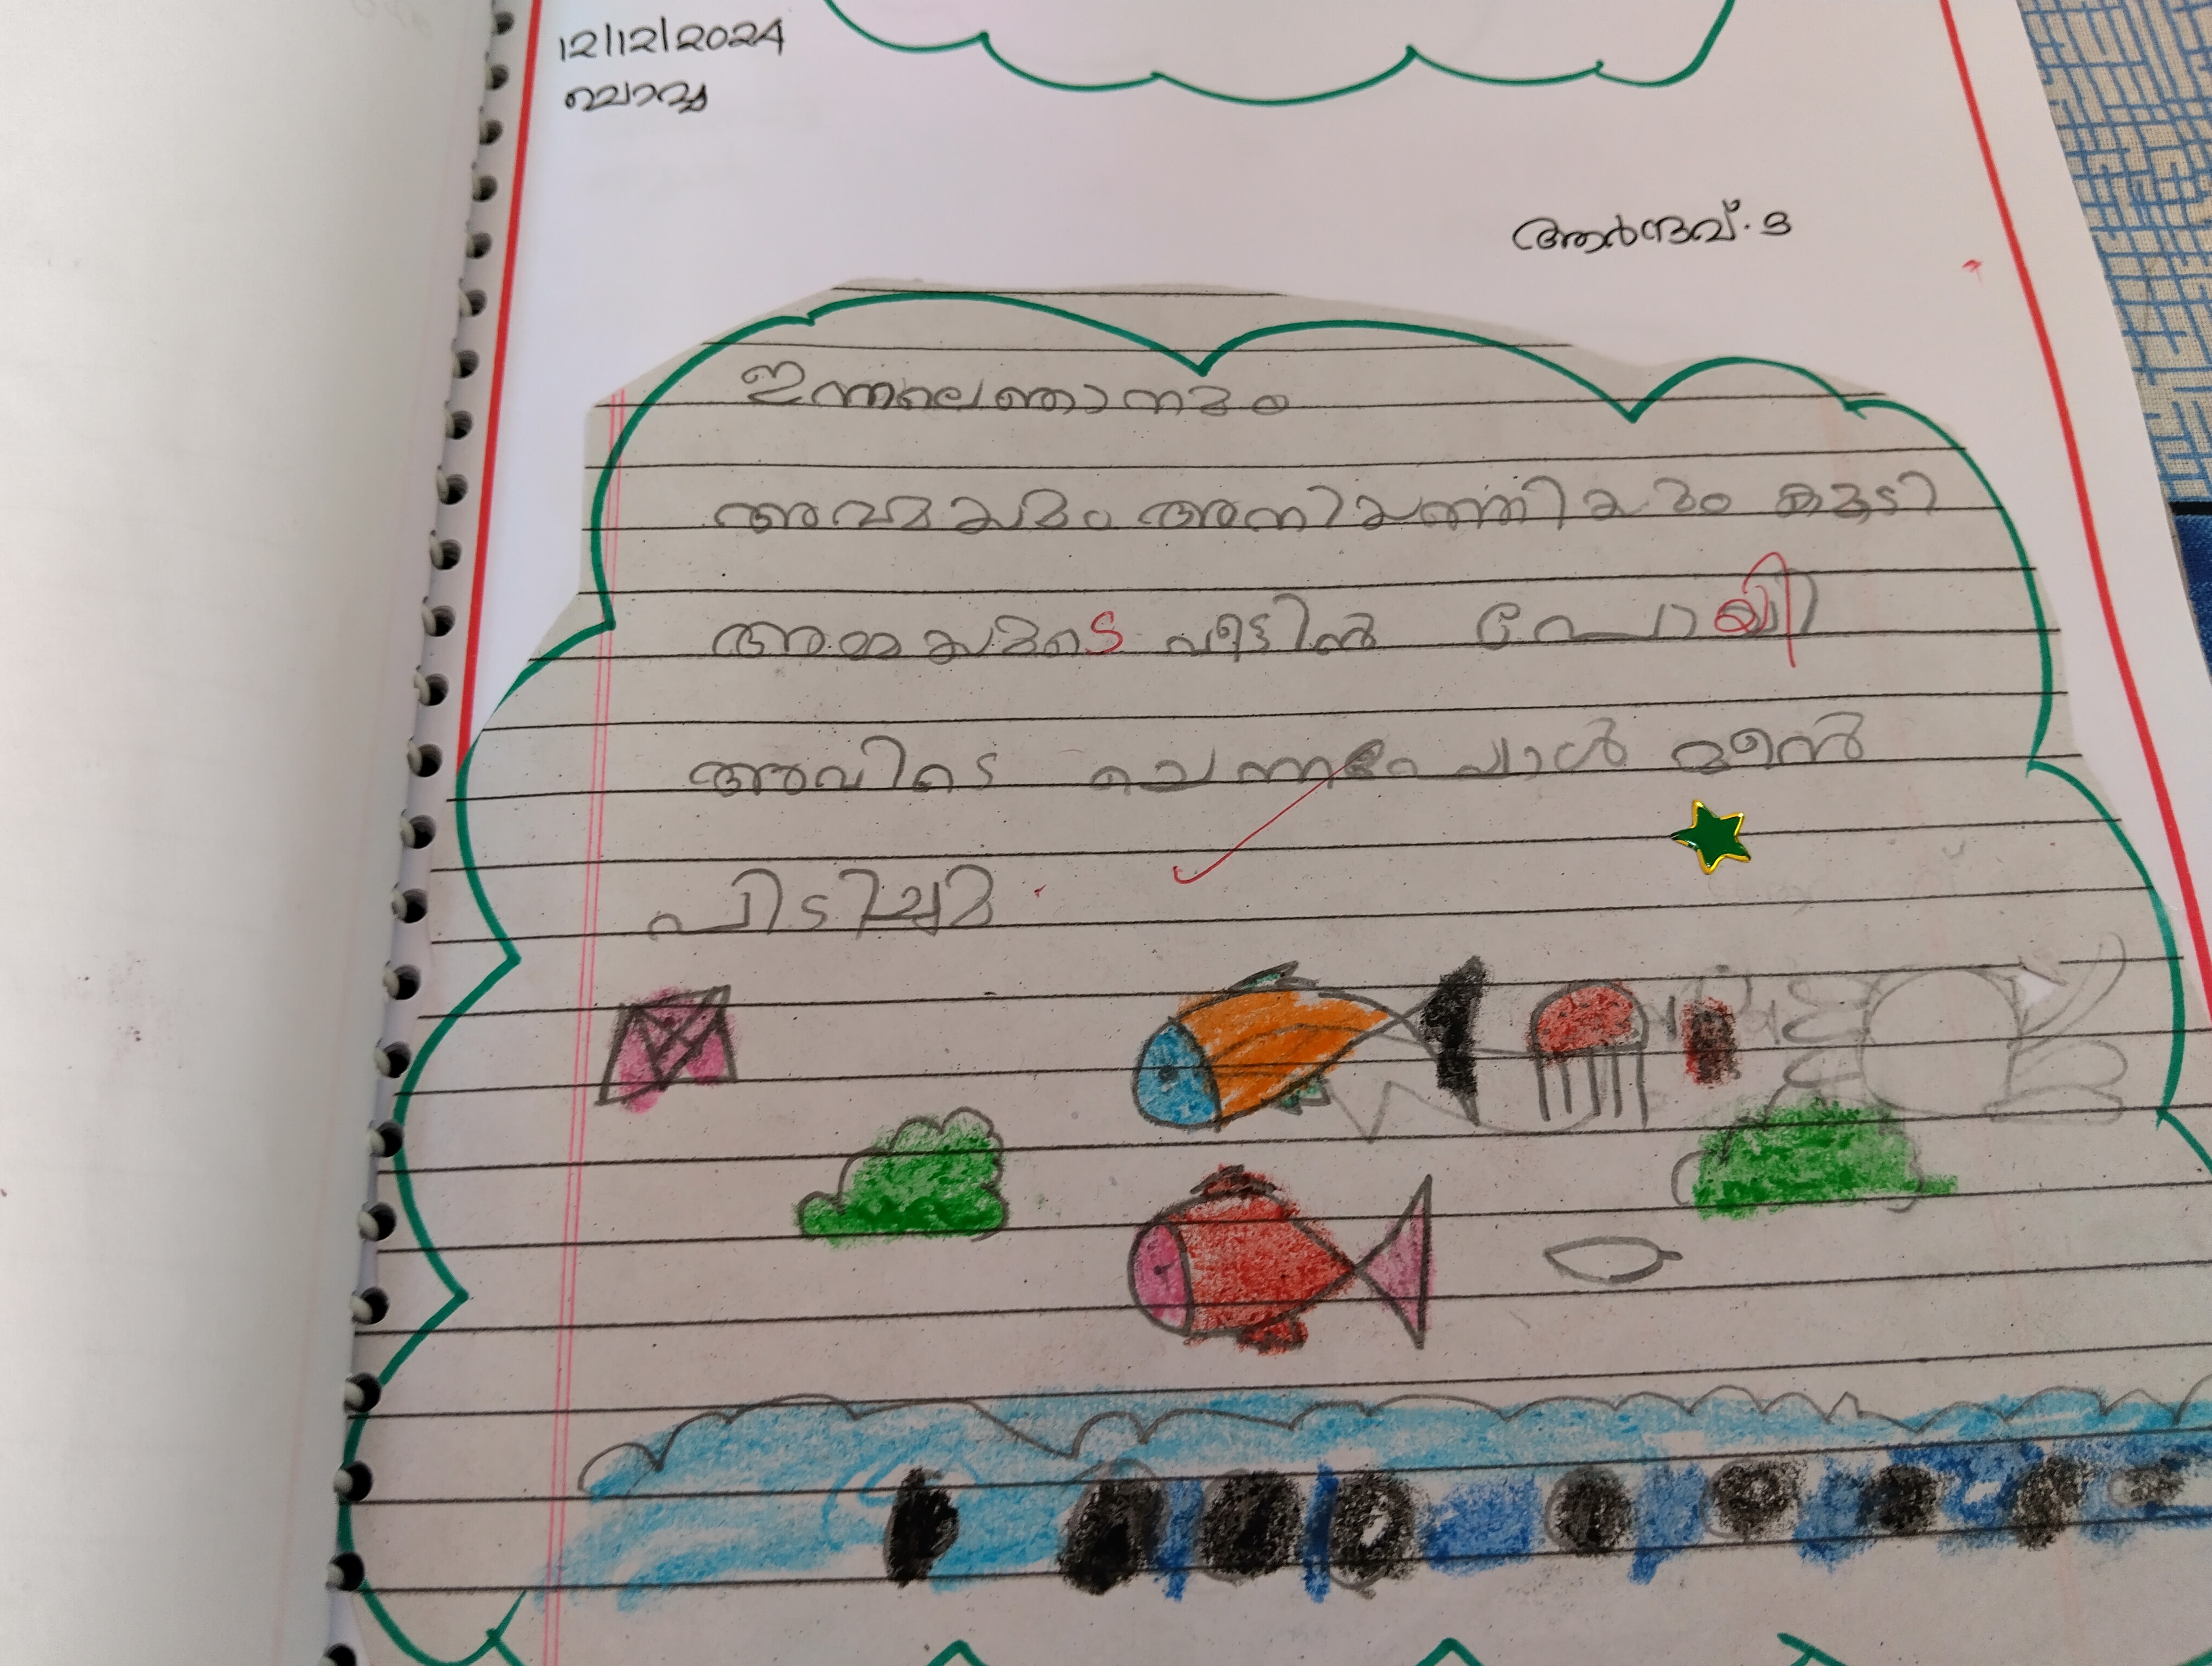 12/12/2024
ചൊവ്വ
ഇന്നലെ ഞാനും
അമ്മയും അനിയത്തിയും കൂടി
അമ്മയുടെ വീട്ടിൽ പോയി
അവിടെ ചെന്നപ്പോൾ മീൻ
പിടിച്ചു.